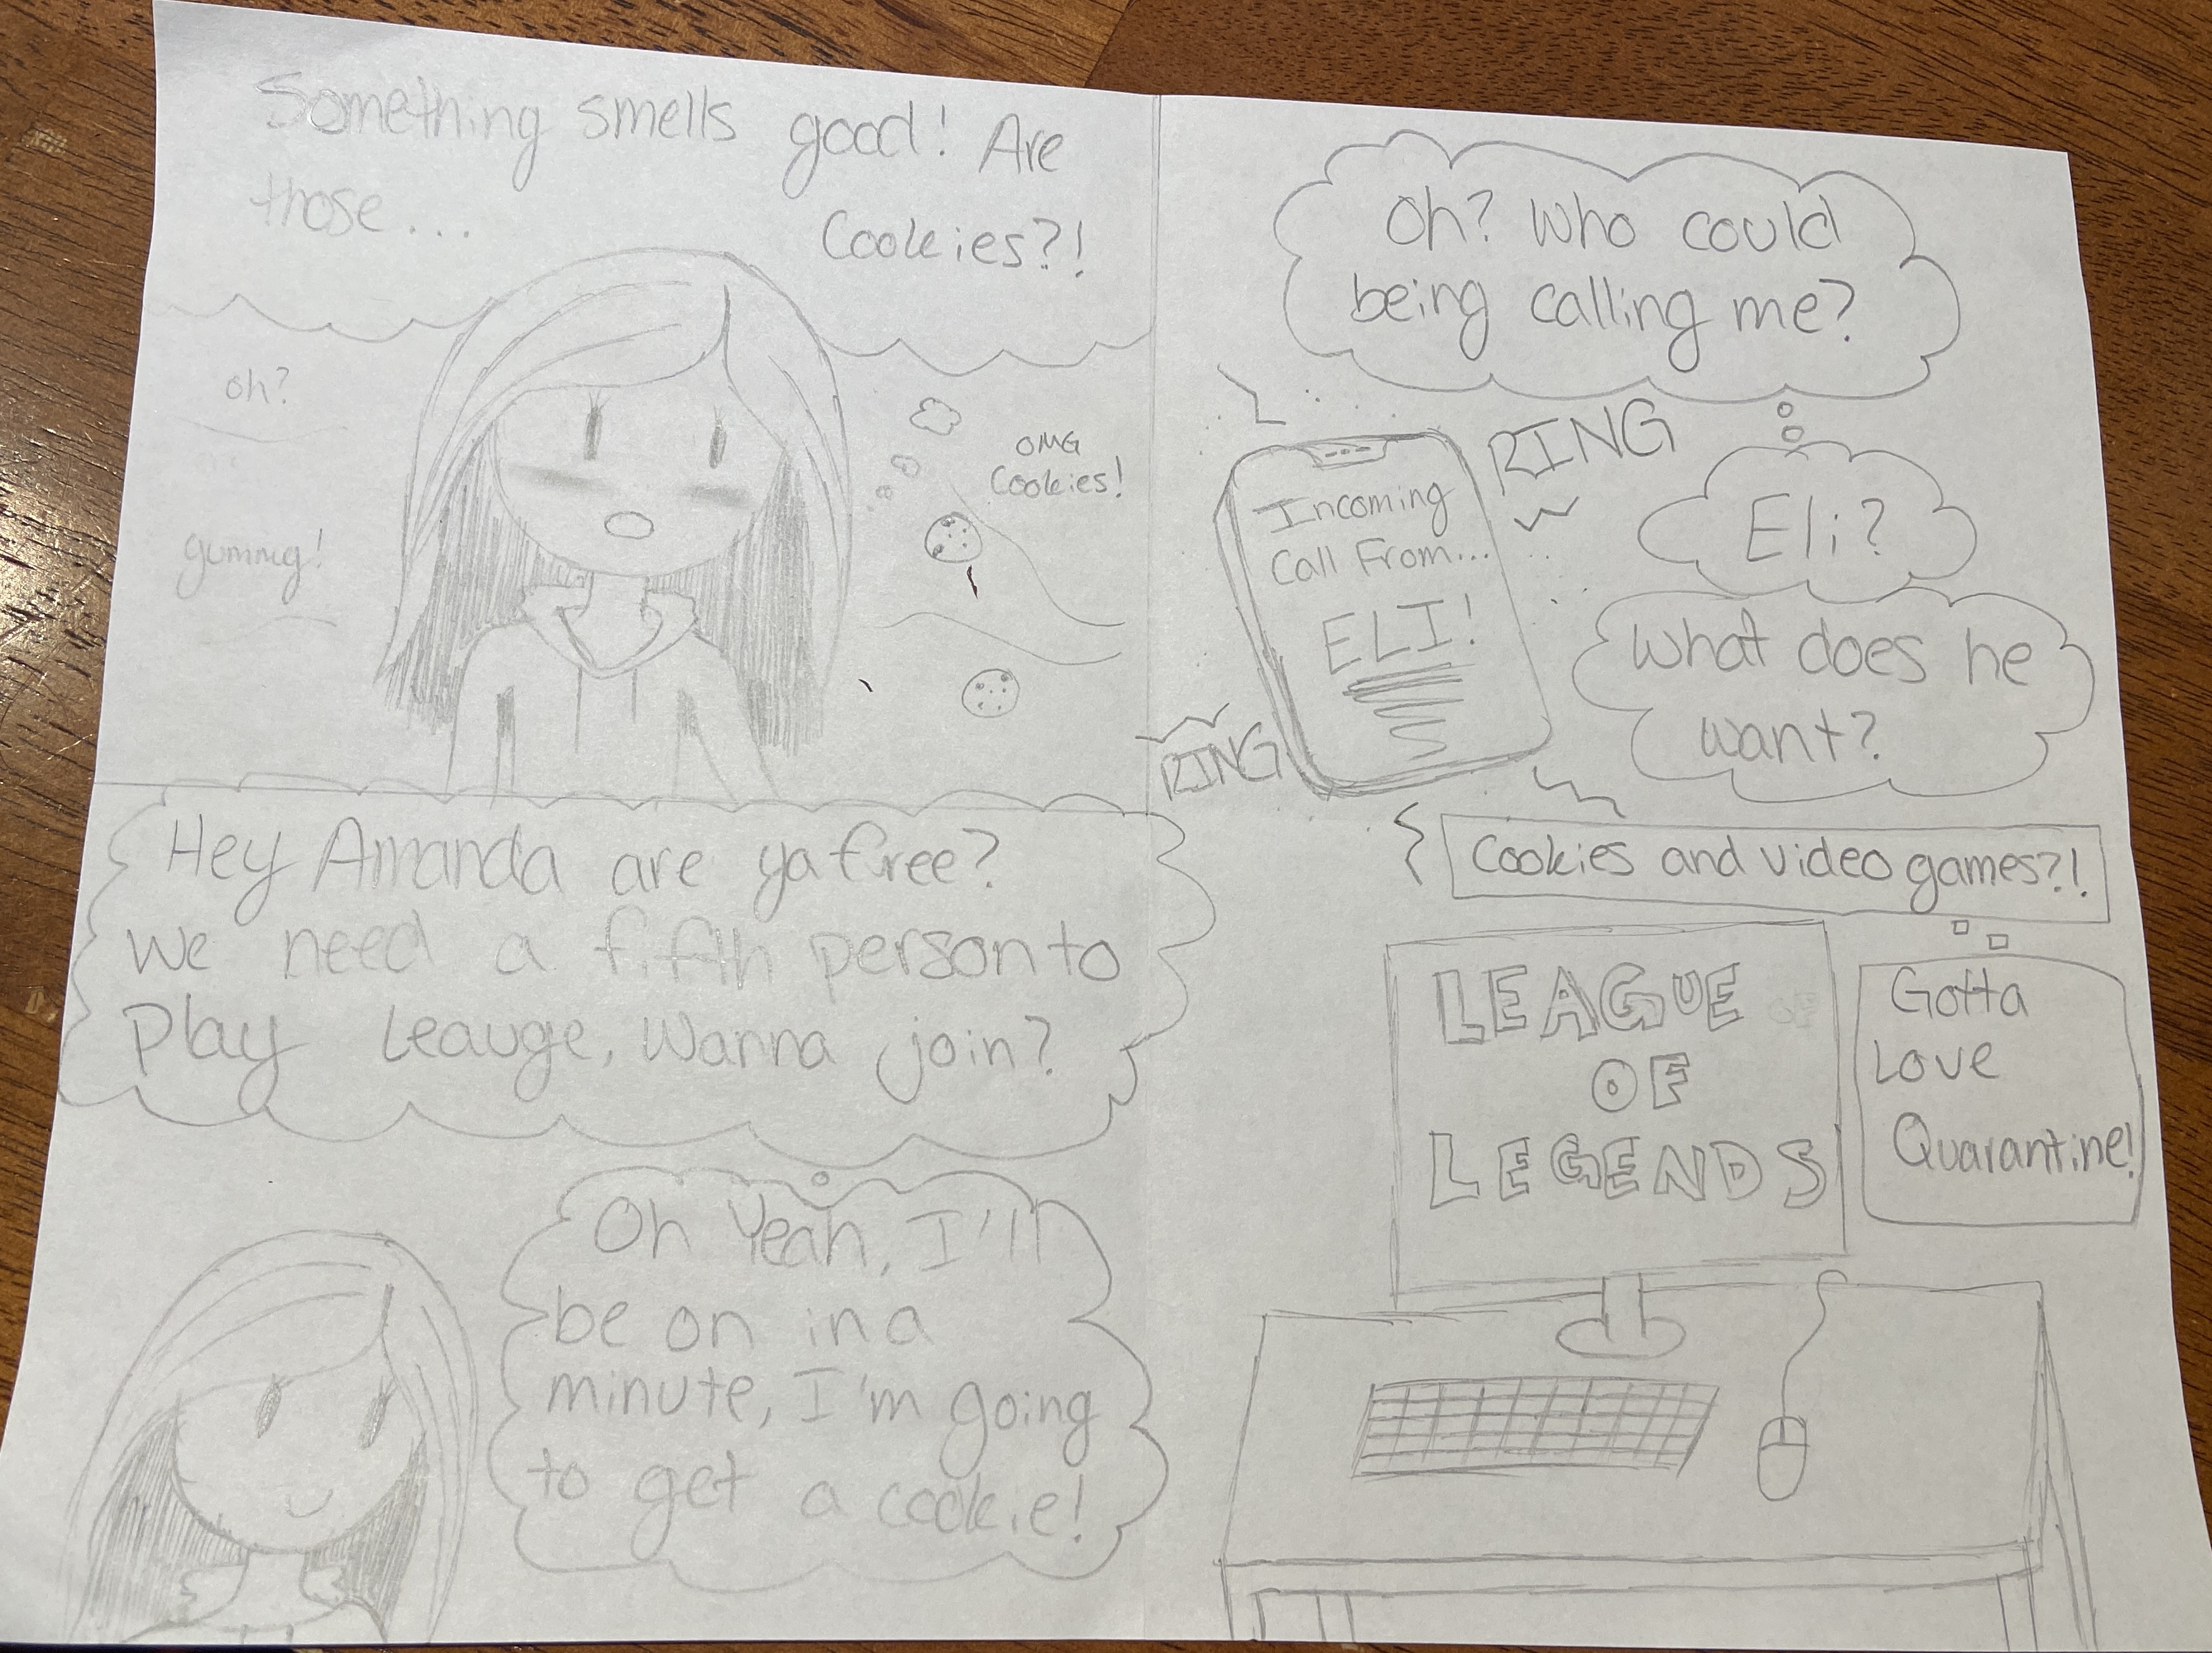 Something smells good! Are
those...
Cookies?!
oh?
OMG
Cookies!
yummy!
Oh? Who could
being calling me?
RING
Incoming
Call From...
ELI!
Eli?
What does he
want?
RING
Hey Amanda are ya free?
We need a fifth person to
Play Leauge, Wanna join?
Oh Yeah, I'll
be on in a
minute, I'm going
to get a cookie!
Cookies and video games?!
LEAGUE
OF
LEGENDS
Gotta
Love
Quarantine!